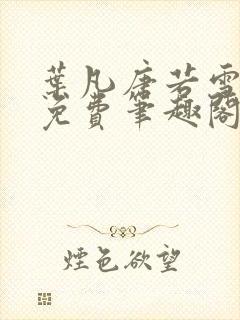 葉凡唐若雪
免費筆趣閣
煙色欲望